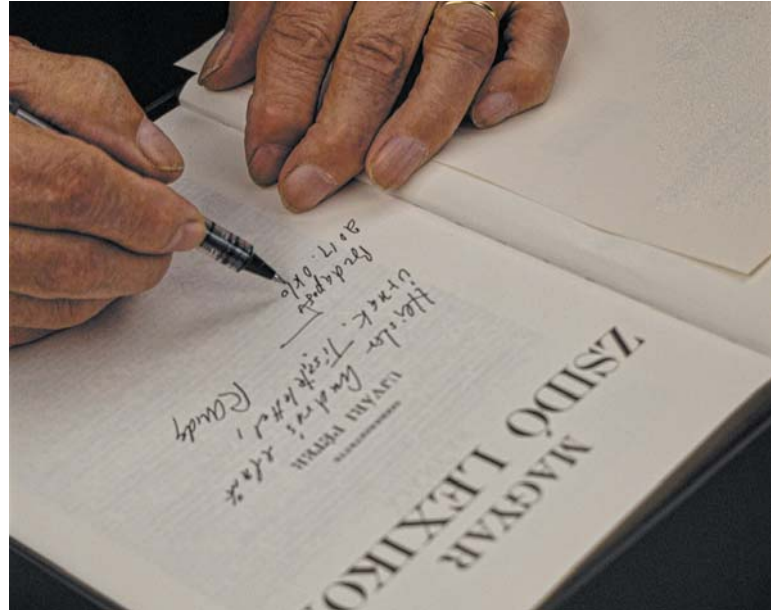 MAGYAR
ZSIDÓ LEXIKO
SZERKESZTETTE
UJVÁRI PÉTER
Heisler András elnök
úrnak. Tisztelettel,
Randy
Budapest
2017. okt